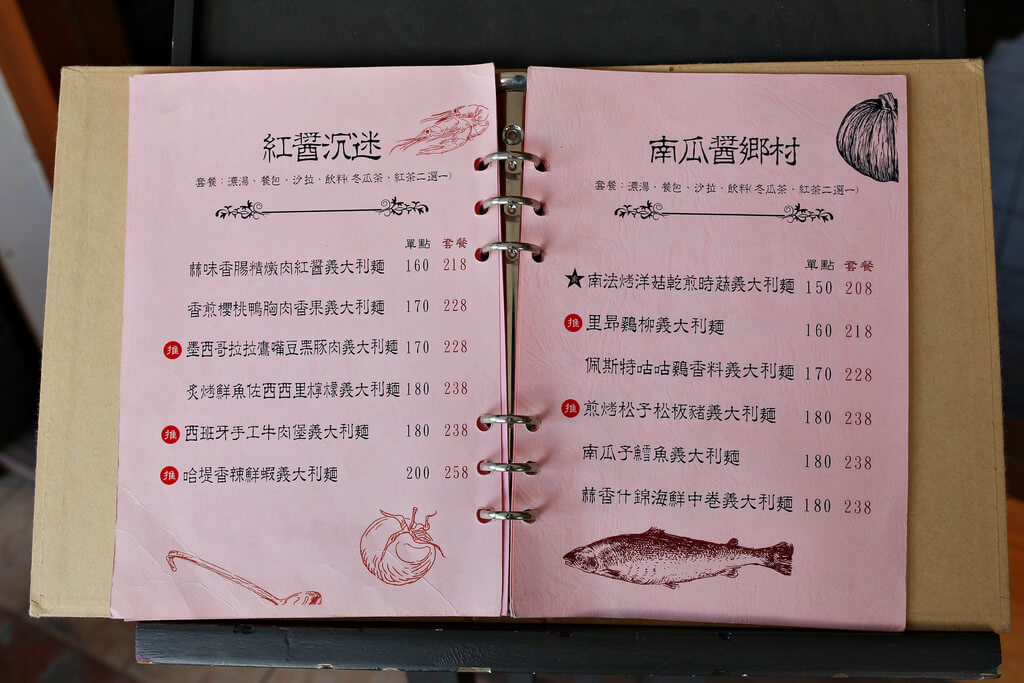 紅醬沉迷
套餐：濃湯、餐包、沙拉、飲料(冬瓜茶、紅茶二選一)
單點 套餐
蒜味香腸精燉肉紅醬義大利麵 160 218
香煎櫻桃鴨胸肉香果義大利麵 170 228
推 墨西哥拉拉鷹嘴豆黑豚肉義大利麵 170 228
炙烤鮮魚佐西西里檸檬義大利麵 180 238
推 西班牙手工牛肉堡義大利麵 180 238
推 哈堤香辣鮮蝦義大利麵 200 258
南瓜醬鄉村
套餐：濃湯、餐包、沙拉、飲料(冬瓜茶、紅茶二選一)
單點 套餐
南法烤洋菇乾煎時蔬義大利麵 150 208
推 里昂雞柳義大利麵 160 218
佩斯特咕咕雞香料義大利麵 170 228
推 煎烤松子松板豬義大利麵 180 238
南瓜子鱈魚義大利麵 180 238
蒜香什錦海鮮中卷義大利麵 180 238